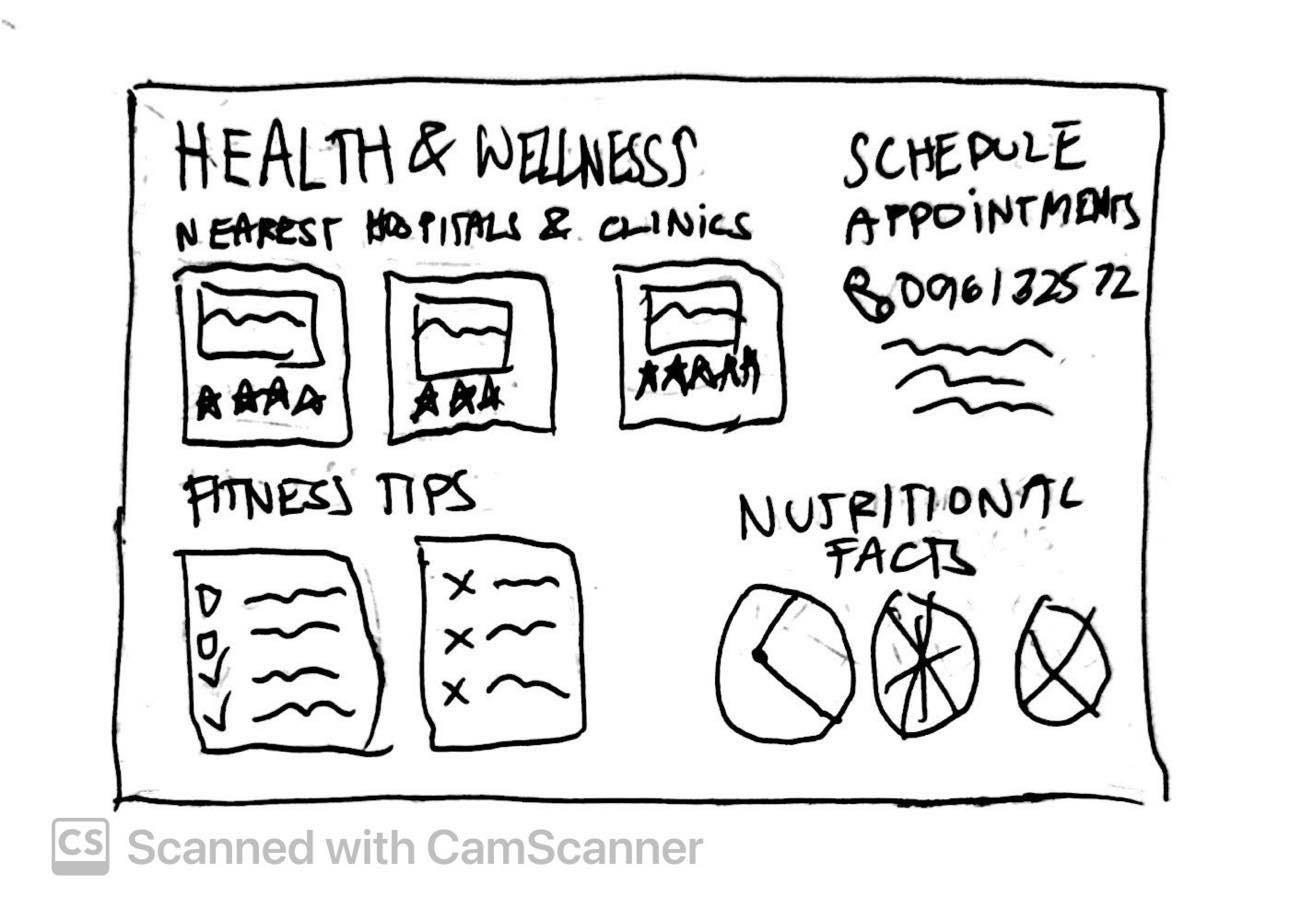 HEALTH & WELLNESSS
NEAREST HOSPITALS & CLINICS
SCHEDULE
APPOINTMENTS
096132572
FITNESS TIPS
NUTRITIONAL
FACTS
CS Scanned with CamScanner